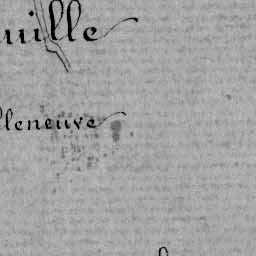 uille
lleneuve